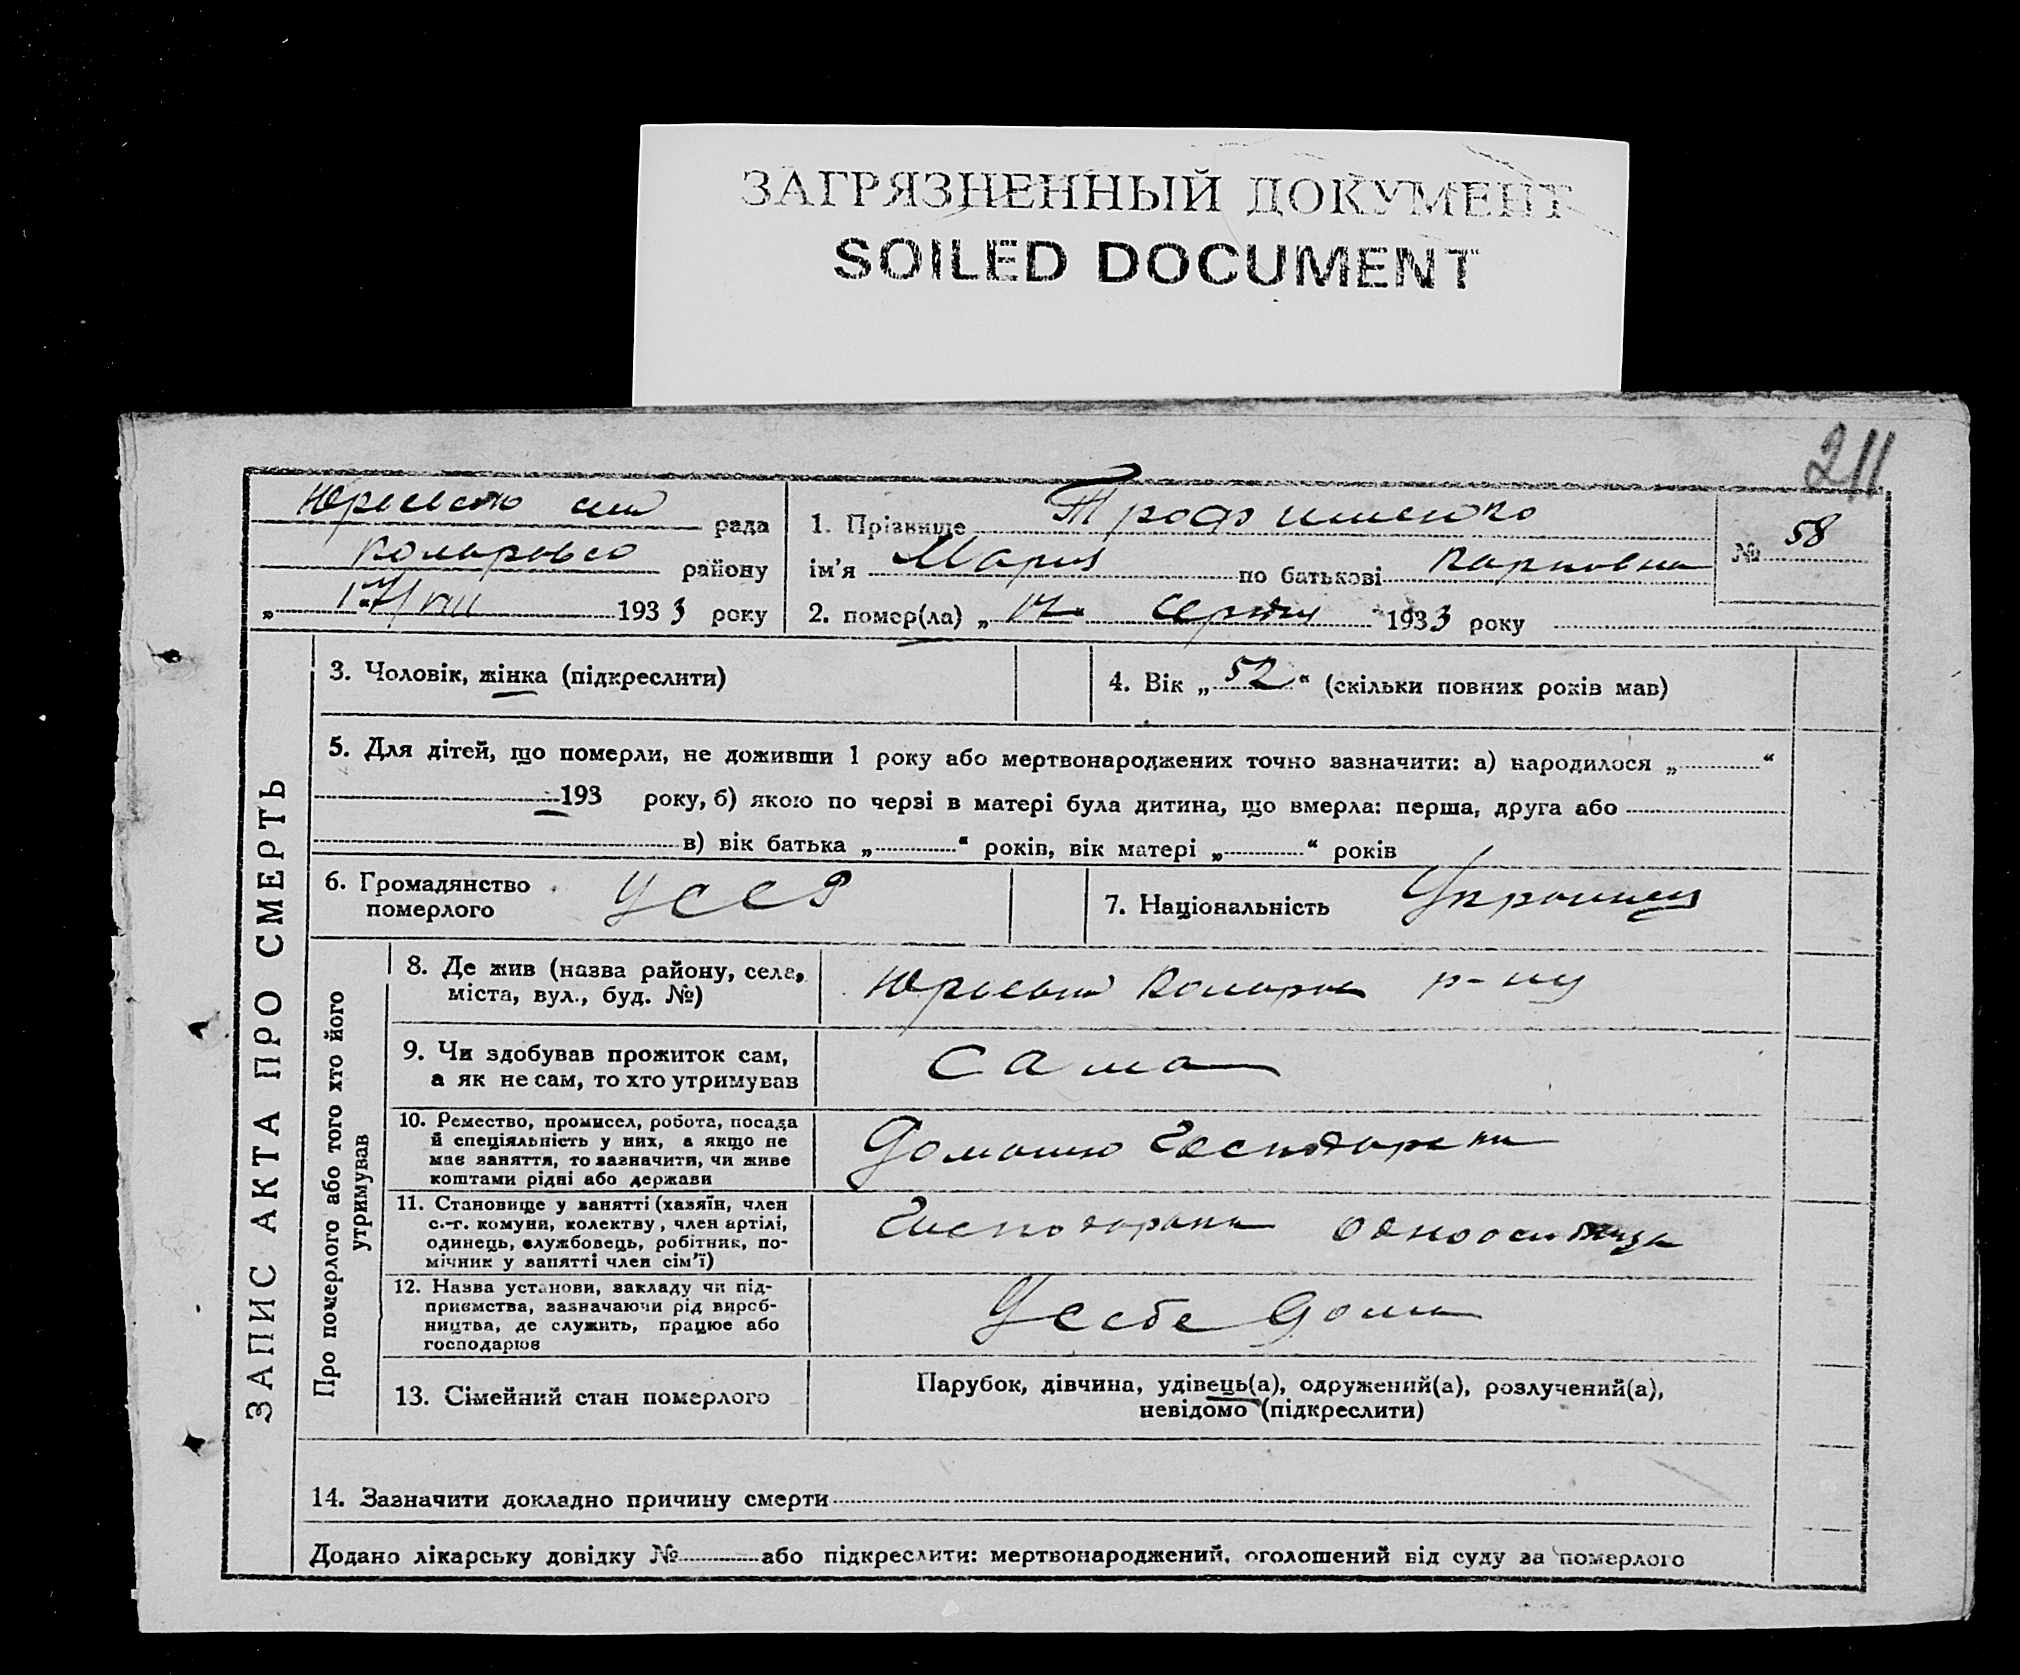 ЗАГРЯЗНЕННЫЙ ДОКУМЕНТ
SOILED DOCUMENT
211
рада
району
„ 17/VIII 1933 року
1. Прізвище Трофименко
ім’я Мария по батькові Карповна
№ 58
2. помер(ла) „ 17 серпня 1933 року
ЗАПИС АКТА ПРО СМЕРТЬ
3. Чоловік, жінка (підкреслити)
4. Вік „ 52 “ (скільки повних років мав)
5. Для дітей, що померли, не доживши 1 року або мертвонароджених точно зазначити: а) народилося „ “
193 року, б) якою по черзі в матері була дитина, що вмерла: перша, друга або
в) вік батька „ “ років, вік матері „ “ років
6. Громадянство
померлого
УССР
7. Національність
Про померлого або того хто його
утримував
8. Де жив (назва району, села,
міста, вул., буд. №)
р-ну
9. Чи здобував прожиток сам,
а як не сам, то хто утримував
Сама
10. Ремество, промисел, робота, посада
й спеціяльність у них, а якщо не
має заняття, то зазначити, чи живе
коштами рідні або держави
11. Становище у занятті (хазяїн, член
с.-г. комуни, колектву, член артілі,
одинець, службовець, робітник, по-
мічник у занятті член сім’ї)
12. Назва установи, закладу чи під-
приємства, зазначаючи рід вироб-
ництва, де служить, працює або
господарює
У себе дома
13. Сімейний стан померлого
Парубок, дівчина, удівець(а), одружений(а), розлучений(а),
невідомо (підкреслити)
14. Зазначити докладно причину смерти
Додано лікарську довідку № або підкреслити: мертвонароджений, оголошений від суду за померлого